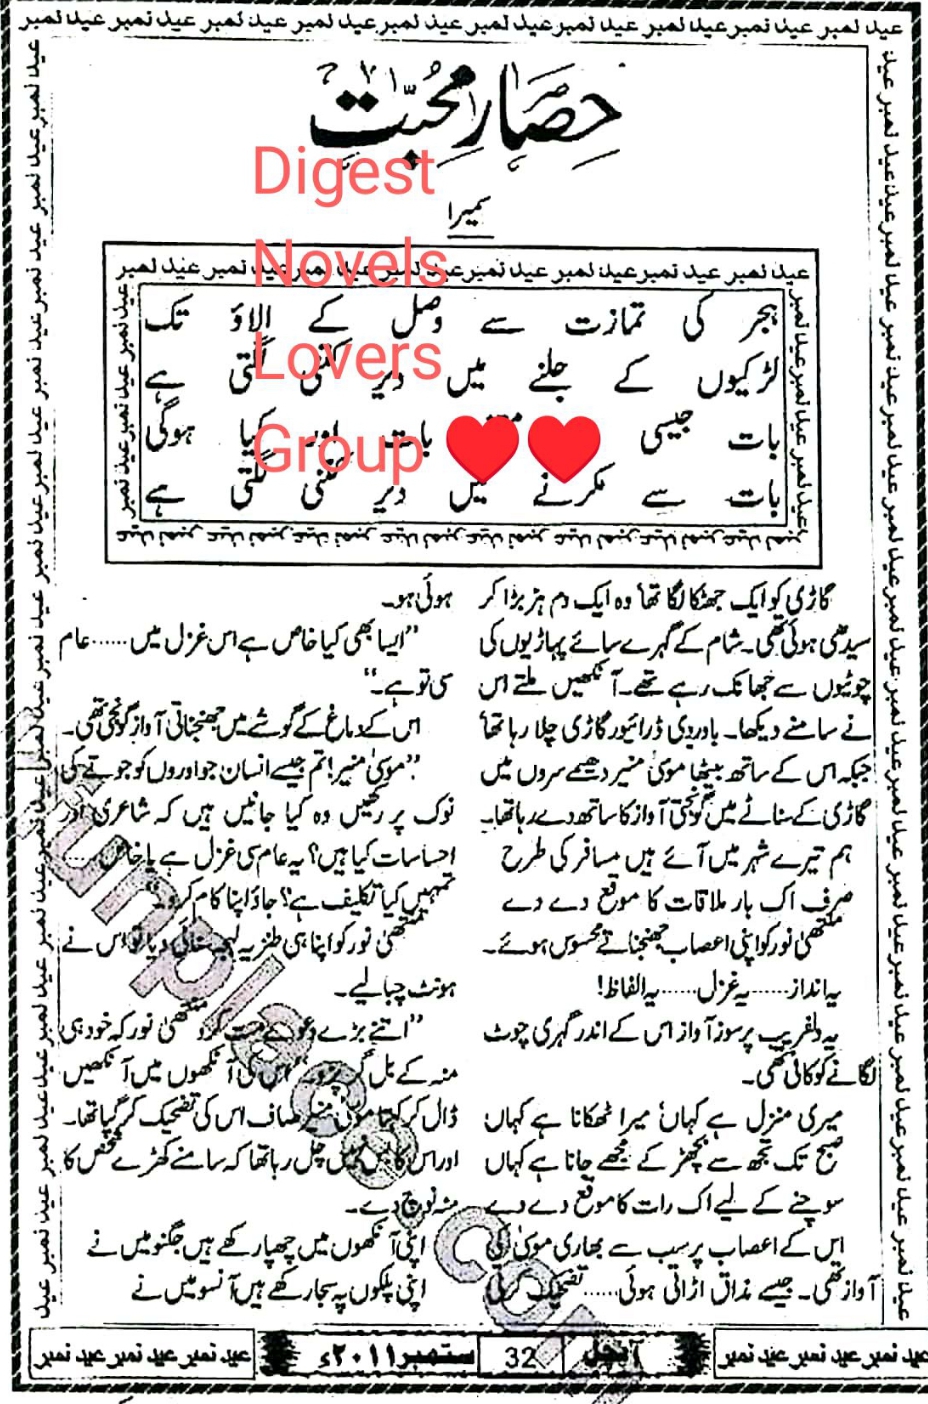 عید نمبر عید نمبر عید نمبر عید نمبر عید نمبر عید نمبر عید نمبر عید نمبر عید نمبر عید نمبر
حصارِ محبت
Digest
سمیرا
Novels
Lovers
Group ❤️❤️
ہجر کی تمازت سے وصل کے الاؤ تک
لڑکیوں کے جلنے میں دیر کتنی لگتی ہے
بات جیسی بات اور کیا ہوگی
بات سے مکرنے میں دیر کتنی لگتی ہے
گاڑی کو ایک جھٹکا لگا تھا وہ ایک دم ہڑبڑا کر
سیدھی ہوئی تھی۔ شام کے گہرے سائے پہاڑیوں کی
چوٹیوں سے جھانک رہے تھے۔ آنکھیں ملتے اس
نے سامنے دیکھا۔ باوردی ڈرائیور گاڑی چلا رہا تھا
جبکہ اس کے ساتھ بیٹھا موسیٰ منیر دھیمے سروں میں
گاڑی کے سناٹے میں گونجتی آواز کا ساتھ دے رہا تھا۔
ہم تیرے شہر میں آئے ہیں مسافر کی طرح
صرف اک بار ملاقات کا موقع دے دے
نور کو اپنی اعصاب جھنجناتے محسوس ہوئے۔
یہ انداز......یہ غزل......یہ الفاظ!
یہ دلفریب پرسوز آواز اس کے اندر گہری چوٹ
لگانے کو کافی تھی۔
میری منزل ہے کہاں میرا ٹھکانا ہے کہاں
صبح تک تجھ سے بچھڑ کے مجھے جانا ہے کہاں
سوچنے کے لیے اک رات کا موقع دے دے
اس کے اعصاب پر سب سے بھاری موسیٰ کی
آواز تھی۔ جیسے مذاق اڑاتی ہوئی...... تضحیک کرتی
ہوئی ہو۔
"ایسا بھی کیا خاص ہے اس غزل میں......عام
سی تو ہے۔"
اس کے دماغ کے گوشے میں جھنجناتی آواز گونجی تھی۔
"موسیٰ منیر! تم جیسے انسان جو اوروں کو جوتے کی
نوک پر رکھیں وہ کیا جانیں ہیں کہ شاعری اور
احساسات کیا ہیں؟ یہ عام سی غزل ہے یا خاص....
تمہیں کیا تکلیف ہے؟ جاؤ اپنا کام کرو۔"
نور کو اپنا ہی طنزیہ لہجہ سنائی دیا تو اس نے
ہونٹ چبا لیے۔
"اتنے بڑے دعوے مت کرو نور کہ خود ہی
منہ کے بل گر پڑو۔" اس کی آنکھوں میں آنکھیں
ڈال کر کہتا موسیٰ منیر صاف اس کی تضحیک کر گیا تھا۔
اور اس کا بس نہیں چل رہا تھا کہ سامنے کھڑے شخص کا
منہ نوچ دے۔
اپنی آنکھوں میں چھپا رکھے ہیں جگنو میں نے
اپنی پلکوں پہ سجا رکھے ہیں آنسو میں نے
عید نمبر عید نمبر عید نمبر عید نمبر عید نمبر آنچل 32 ستمبر ۲۰۱۱ء عید نمبر عید نمبر عید نمبر عید نمبر عید نمبر